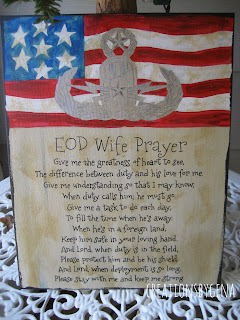 EOD Wife Prayer
Give me the greatness of heart to see,
The difference between duty and his love for me.
Give me understanding so that I may know,
When duty calls him, he must go.
Give me a task to do each day,
To fill the time when he's away.
When he's in a foreign land,
Keep him safe in your loving hand.
And Lord, when duty is in the field,
Please protect him and be his shield.
And Lord, when deployment is so long,
Please stay with me and keep me strong.